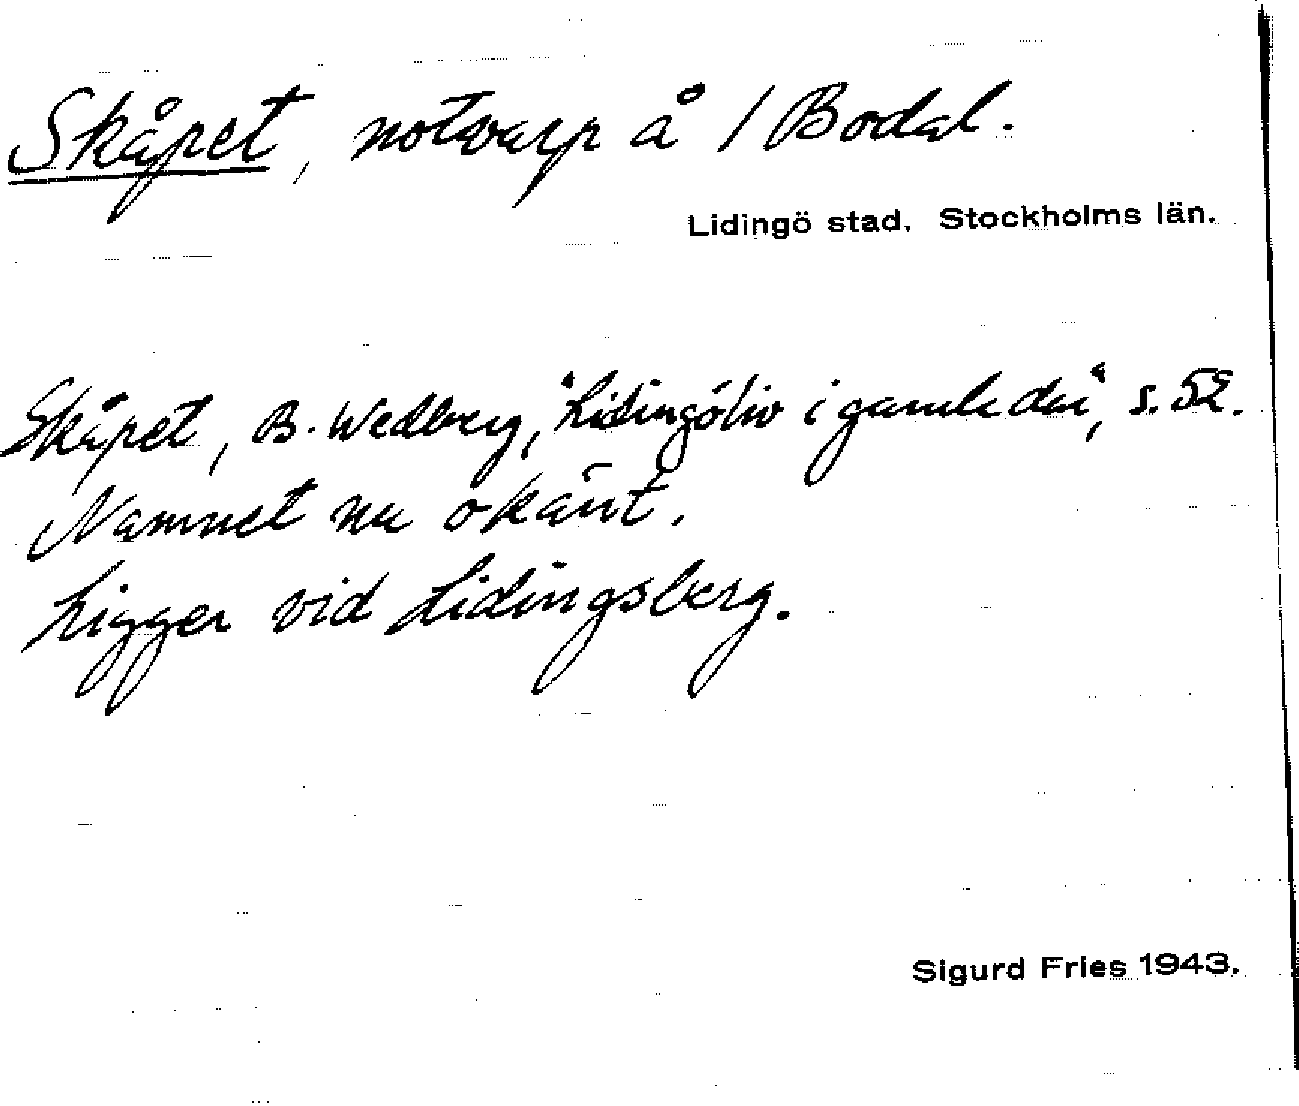 Skåpet, notvarp å / Bodal.
Lidingö stad. Stockholms län.
Skåpet, B. Wedberg, "Lidingöliv i gamla dar", s. 52.
Namnet nu okänt.
Ligger vid Lidingsberg.
Sigurd Fries 1943.